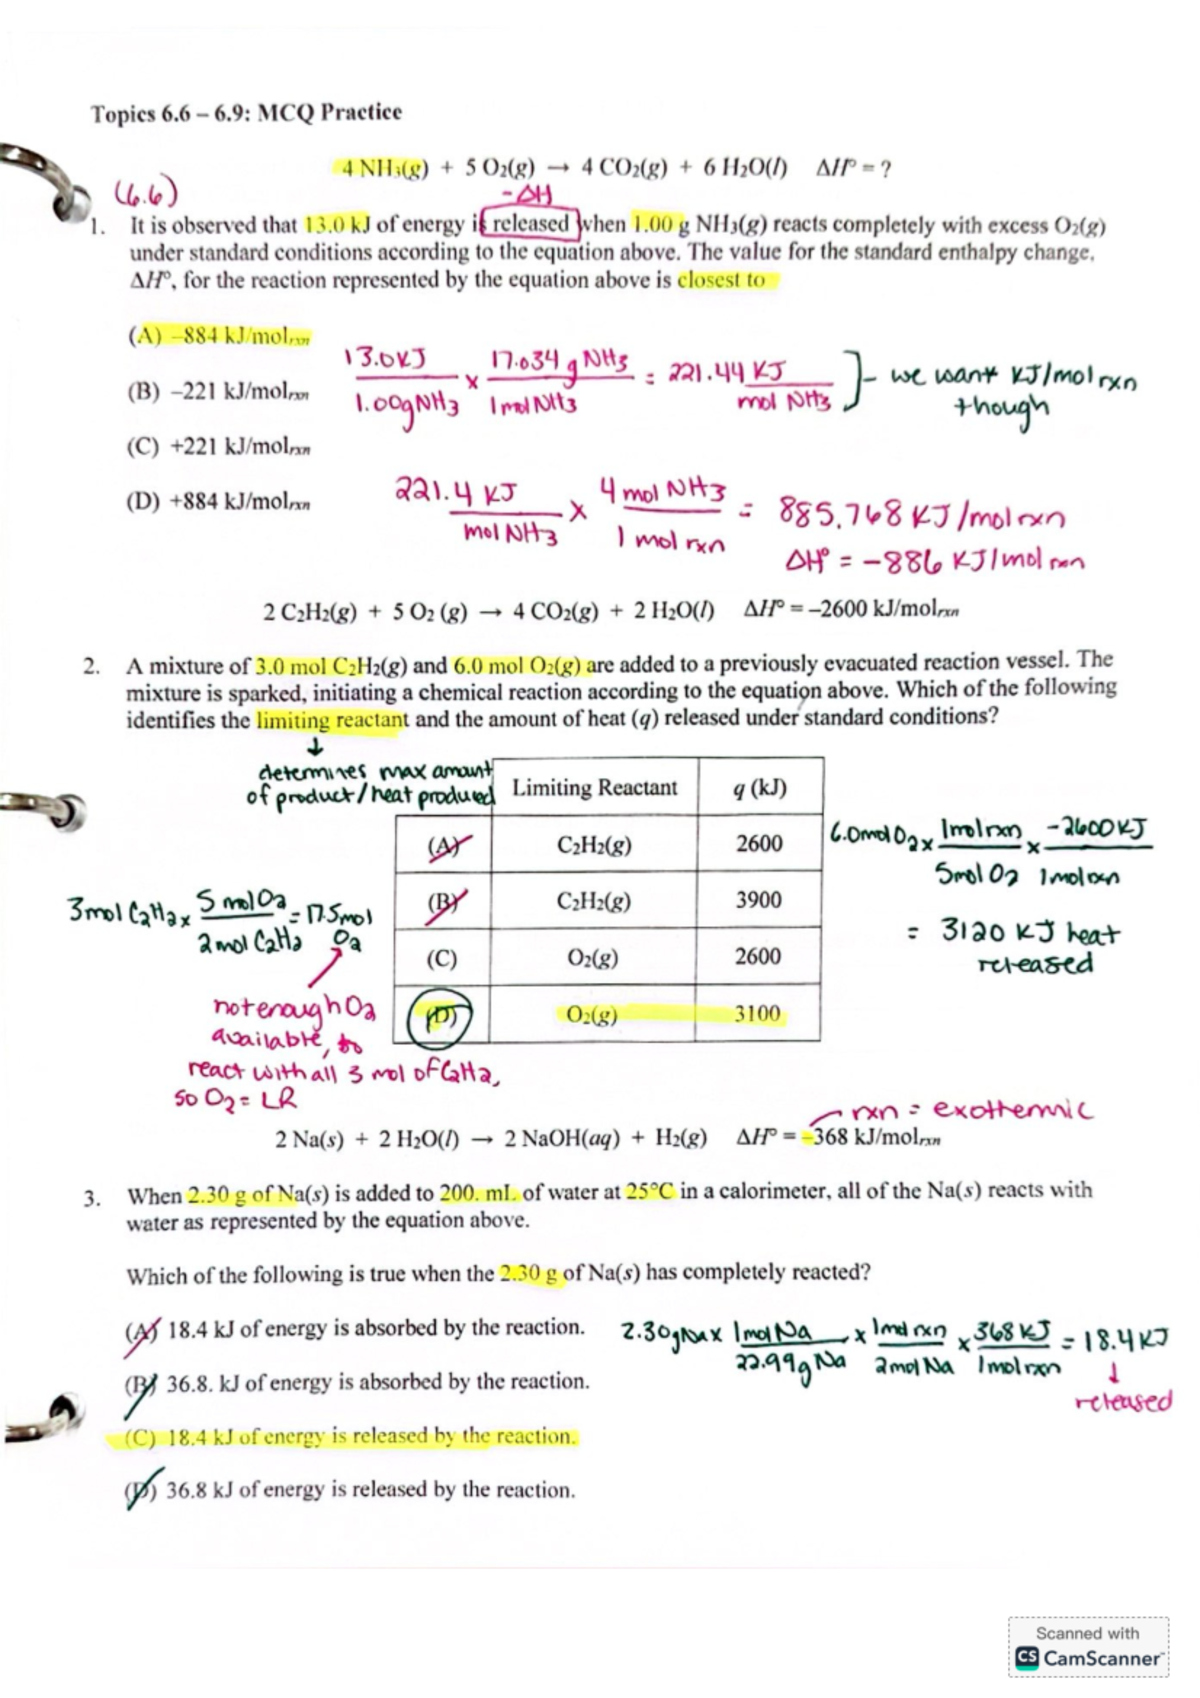 Topics 6.6 – 6.9: MCQ Practice
4 NH₃(g) + 5 O₂(g) → 4 CO₂(g) + 6 H₂O(l) ΔH° = ?
(6.6)
-ΔH
1. It is observed that 13.0 kJ of energy is released when 1.00 g NH₃(g) reacts completely with excess O₂(g)
under standard conditions according to the equation above. The value for the standard enthalpy change,
ΔH°, for the reaction represented by the equation above is closest to
(A) –884 kJ/molrxn
(B) –221 kJ/molrxn
(C) +221 kJ/molrxn
(D) +884 kJ/molrxn
13.0 KJ / 1.00g NH3 x 17.034 g NH3 / 1 mol NH3 = 221.44 KJ / mol NH3 ]- we want KJ/mol rxn
though
221.4 KJ / mol NH3 x 4 mol NH3 / 1 mol rxn = 885.768 KJ/mol rxn
ΔH° = -886 KJ/mol rxn
2 C₂H₂(g) + 5 O₂ (g) → 4 CO₂(g) + 2 H₂O(l) ΔH° = –2600 kJ/molrxn
2. A mixture of 3.0 mol C₂H₂(g) and 6.0 mol O₂(g) are added to a previously evacuated reaction vessel. The
mixture is sparked, initiating a chemical reaction according to the equation above. Which of the following
identifies the limiting reactant and the amount of heat (q) released under standard conditions?
↓
determines max amount
of product/heat produced
Limiting Reactant q (kJ)
(A) C₂H₂(g) 2600
(B) C₂H₂(g) 3900
(C) O₂(g) 2600
(D) O₂(g) 3100
6.0mol O2 x 1mol rxn / 5mol O2 x -2600KJ / 1mol rxn
= 3120 KJ heat
released
3mol C2H2 x 5 mol O2 / 2 mol C2H2 = 17.5mol
O2
not enough O2
available, to
react with all 3 mol of C2H2,
so O2 = LR
rxn = exothermic
2 Na(s) + 2 H₂O(l) → 2 NaOH(aq) + H₂(g) ΔH° = –368 kJ/molrxn
3. When 2.30 g of Na(s) is added to 200. mL of water at 25°C in a calorimeter, all of the Na(s) reacts with
water as represented by the equation above.
Which of the following is true when the 2.30 g of Na(s) has completely reacted?
(A) 18.4 kJ of energy is absorbed by the reaction.
(B) 36.8. kJ of energy is absorbed by the reaction.
(C) 18.4 kJ of energy is released by the reaction.
(D) 36.8 kJ of energy is released by the reaction.
2.30g Na x 1mol Na / 22.99g Na x 1mol rxn / 2mol Na x 368 KJ / 1mol rxn = 18.4 KJ
↓
released
Scanned with
CS CamScanner